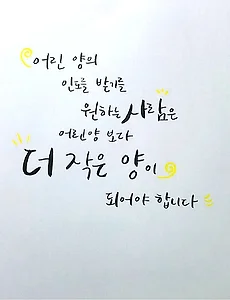 어린 양의
인도를 받기를
원하는 사람은
어린양 보다
더 작은 양이
되어야 합니다